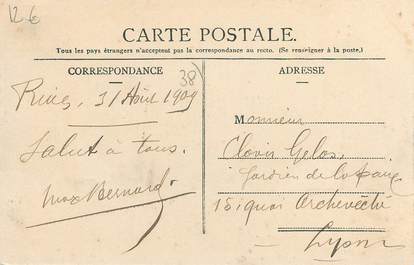 12 €
CARTE POSTALE.
Tous les pays étrangers n'acceptent pas la correspondance au recto. (Se renseigner à la poste.)
CORRESPONDANCE
38)
31 Août 1909
Salut à tous.
Max Bernard.
ADRESSE
Monsieur
Clovis Gelas,
Gardien de la
15, quai Archevêché
Lyon